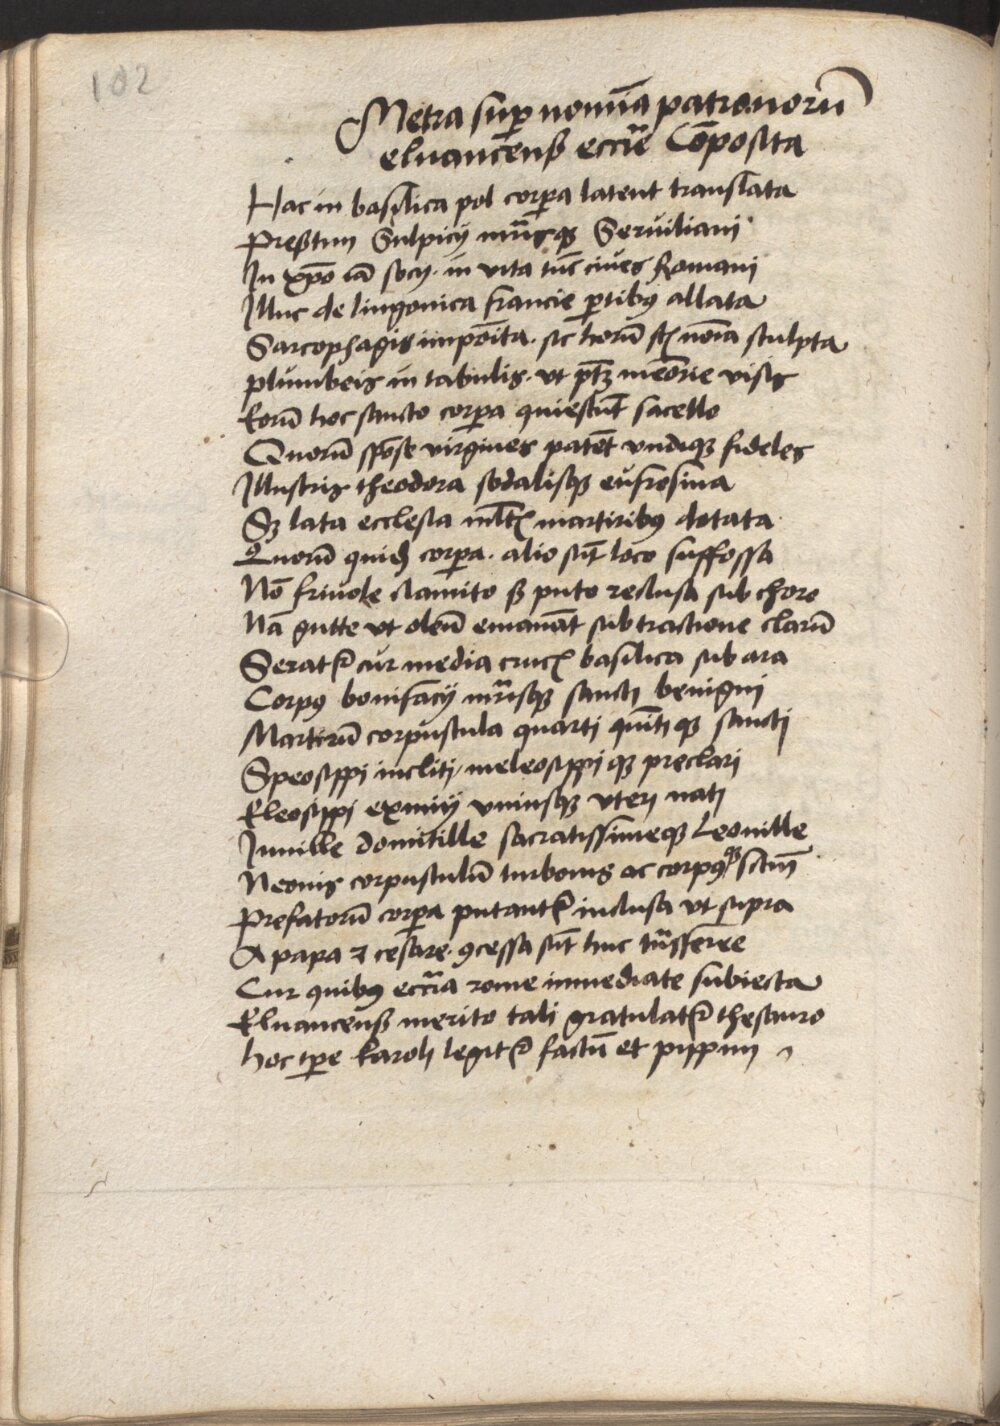 102
Metra sup nomīa patronorū
elvancenß eccīe Cōposita
Hac in basilica pol corpa latent translata
Preßtim Sulpicij mr̄isqꝫ Serviliani
In xp̄o iā socij · in vita tūc cives Romani
Illuc de lingonica francie ptibꝰ allata
Sarcophagis impōita · sic horū st̄ noīa sculpta
plumbeis in tabulis · vt ptꝫ memōrie visis
Eorū hoc sancto corpa quiescūt sacello
Quorū spōse virgines patēt vndiqꝫ fideles
Illustris theodora sodalisqꝫ eufrosina
Sꝫ lata ecclesia mlt̄ martiribꝰ dotata
Quorū quid̄ corpa · alio sūt loco suffossa
Nō frivole clamito sꝫ puto reclusa sub choro
Nā gutte vt oleū emanāt subtractione clarū
Seratr̄ cur media crucꝭ basilica sub ara
Corpꝰ bonifacij mr̄isqꝫ sancti benigni
Martirū corpuscula quarti quīti qꝫ sancti
Speosippi incliti / meleosippi qꝫ preclari
Eleosippi eximij vniusqꝫ vteri nati
Iunille domitille sacratissimeqꝫ Leonille
Neonis corpusculū turbonis ac corpꝰqꝫ sctm̄
Prefatorū corpa putantr̄ inclusa vt supra
A papa ⁊ cesare · ꝯcessa sūt huc trāsferre
Cur quibꝰ eccīa rome inmediate subiecta
Elvancenß merito tali gratulatr̄ thesauro
hoc tpe karoli legitr̄ factū et pippini